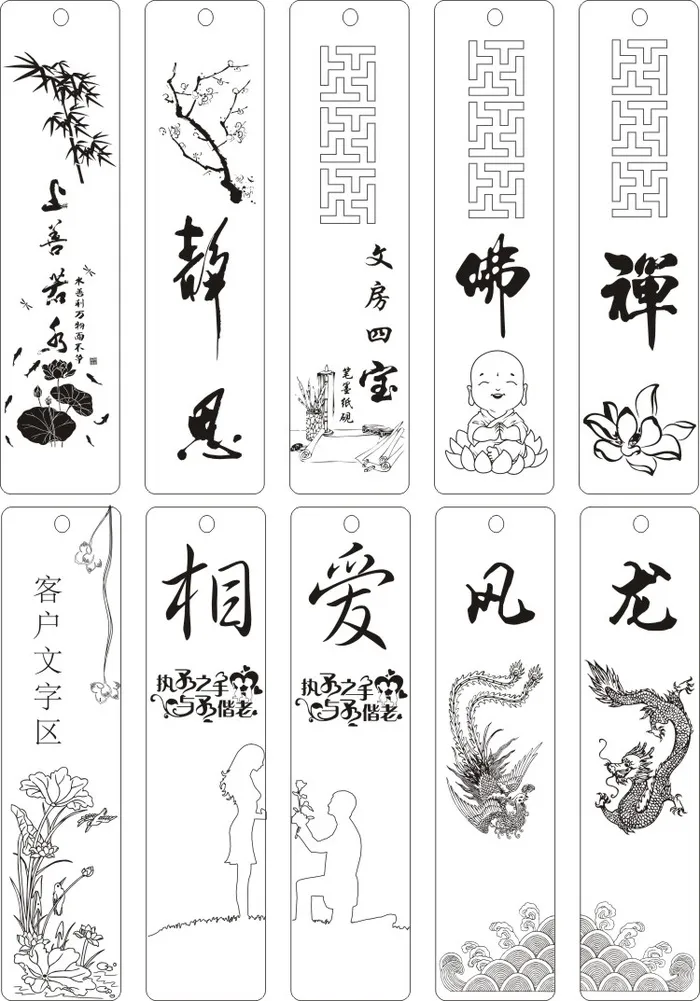 上善若水
水善利万物而不争
静思
文房四宝
笔墨纸砚
佛
禪
客户文字区
相
执子之手
与子偕老
爱
执子之手
与子偕老
凤
龙